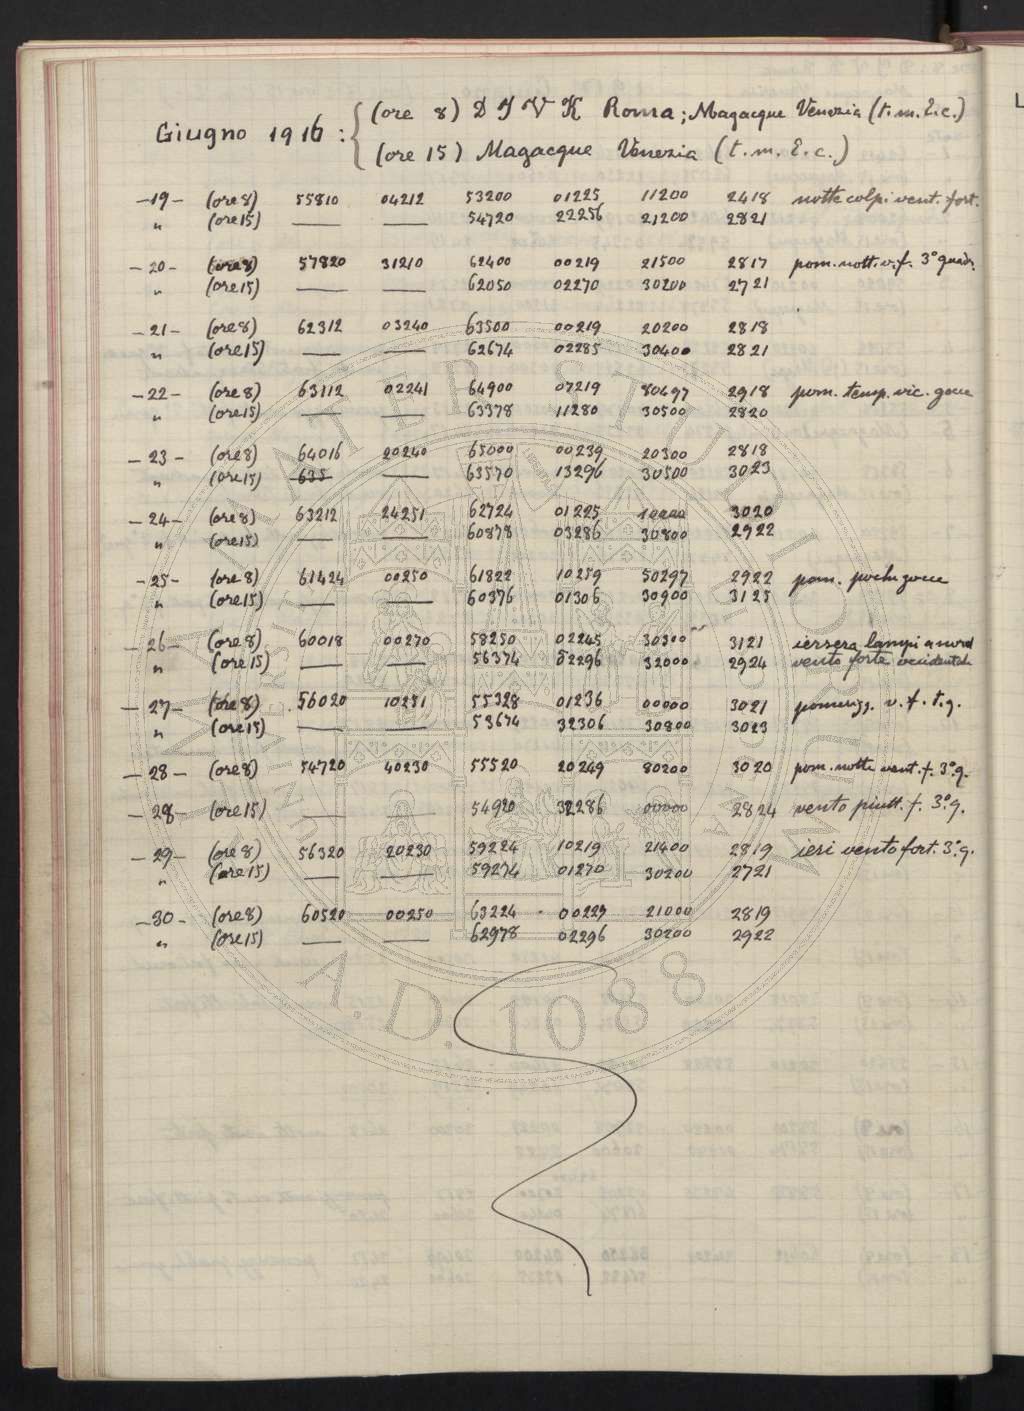 Giugno 1916 : { (ore 8) D I V K Roma; Magacque Venezia (t.m.E.c.)
(ore 15) Magacque Venezia (t.m.E.c.)
—19— (ore 8) 55810 04212 53200 01225 11200 2418 notte colpi vent. fort.
" (ore 15) —— —— 54720 22256 21200 2821
—20— (ore 8) 57820 31210 62400 00219 21500 2817 pom. nott. v. f. 3° quadr.
" (ore 15) —— —— 62050 02270 30200 2721
—21— (ore 8) 62312 03240 63500 00219 20200 2818
" (ore 15) —— —— 62674 02285 30400 2821
—22— (ore 8) 63112 02241 64900 07219 80697 2918 pom. temp. vic. gocce
" (ore 15) —— —— 63378 11280 30500 2820
—23— (ore 8) 64016 20240 65000 00239 20300 2818
" (ore 15) 635 —— 63570 13296 30500 3023
—24— (ore 8) 63212 24251 62724 01225 3020
" (ore 15) —— —— 60878 03286 30800 2922
—25— (ore 8) 61424 00250 61822 10259 50297 2922 pom. poche gocce
" (ore 15) —— —— 60376 01306 30900 3125
—26— (ore 8) 60018 00270 58250 02245 30300 3121 iersera lampi a nord
" (ore 15) —— —— 56374 52296 32000 2924 vento forte occidentale
—27— (ore 8) 56020 10251 55328 01236 00000 3021 pomerigg. v. f. t. g.
" (ore 15) —— —— 53674 32306 30800 3023
—28— (ore 8) 54720 40230 55520 20249 80200 3020 pom. notte vent. f. 3° q.
—28— (ore 15) —— —— 54920 32286 00000 2824 vento piutt. f. 3° q.
—29— (ore 8) 56320 20230 59224 10219 21400 2819 ieri vento fort. 3° q.
" (ore 15) —— —— 59274 01270 30200 2721
—30— (ore 8) 60520 00250 63224 00229 21000 2819
" (ore 15) —— —— 62978 02296 30200 2922
ALMA MATER STUDIORUM
A.D. 1088